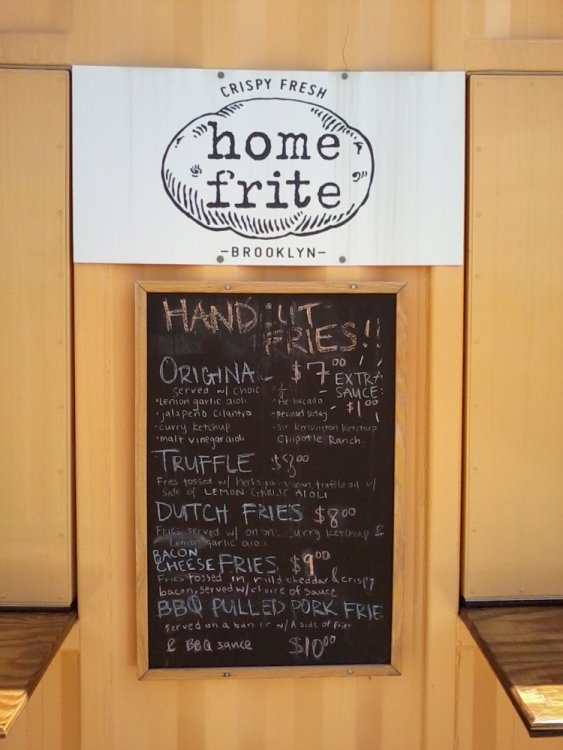 CRISPY FRESH
home
frite
-BROOKLYN-
HAND CUT
FRIES!!
ORIGINAL $7.00
EXTRA
SAUCE:
$1.00
served w/ choice
· Lemon garlic aioli
· jalapeño cilantro
· peanut satay
· curry ketchup
· Sir Kensington Ketchup
· malt vinegar aioli
Chipotle Ranch
TRUFFLE $8.00
Fries tossed w/ herbs, truffle oil w/
side of LEMON GARLIC AIOLI
DUTCH FRIES $8.00
Fries served w/ onions, curry ketchup &
Lemon garlic aioli
BACON
CHEESE FRIES $9.00
Fries tossed in mild cheddar & crispy
bacon, served w/ choice of sauce
BBQ PULLED PORK FRIE
served on a bun or w/ A side of fries
& BBQ sauce $10.00